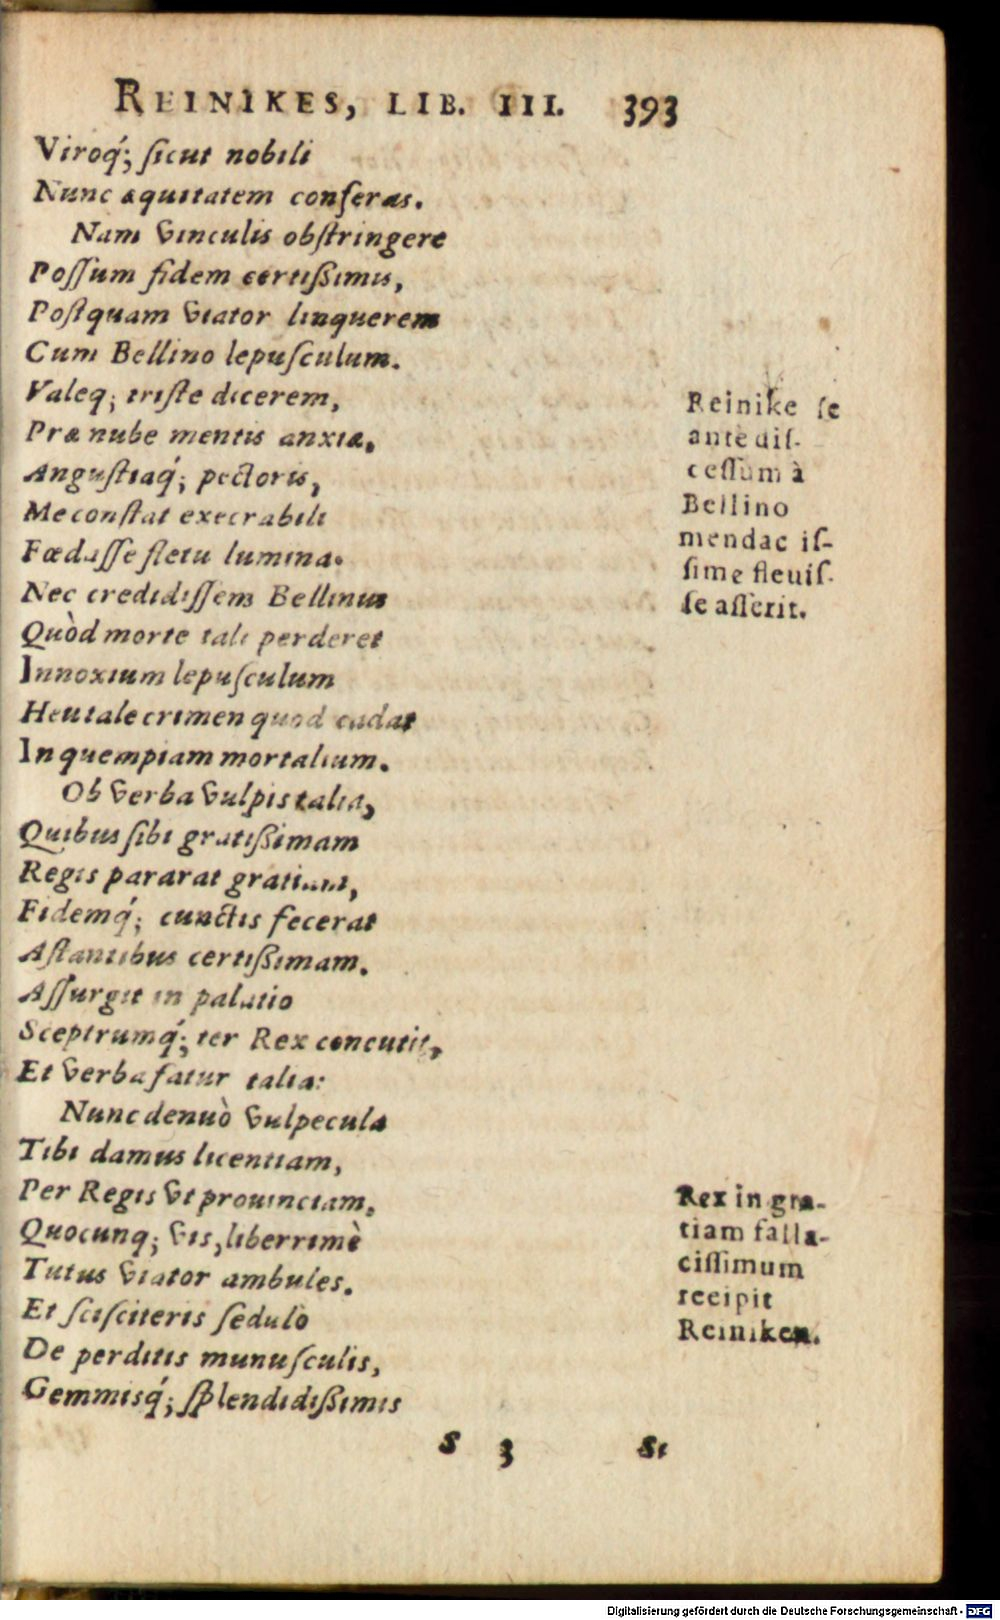 REINIKES, LIB. III. 393
Viroq́; ſicut nobili
Nunc æquitatem conſeras.
Nam vinculis obſtringere
Poſſum fidem certißimis,
Poſtquam viator linquerem
Cum Bellino lepuſculum.
Valeq; triſte dicerem,
Præ nube mentis anxiæ,
Anguſtiaq́; pectoris,
Me conſtat execrabili
Fœdaſſe fletu lumina.
Nec credidiſſem Bellinus
Quòd morte tali perderet
Innoxium lepuſculum
Heu tale crimen quod cadat
In quempiam mortalium.
Ob verba vulpis talia,
Quibus ſibi gratißimam
Regis pararat gratiam,
Fidemq́; cunctis fecerat
Aſtantibus certißimam.
Aſſurgit in palatio
Sceptrumq́; ter Rex concutit,
Et verba fatur talia:
Nunc denuò vulpecula
Tibi damus licentiam,
Per Regis vt prouinciam,
Quocunq; vis, liberrimè
Tutus viator ambules.
Et ſciſciteris ſedulò
De perditis munuſculis,
Gemmisq́; ſplendidißimis
Reinike ſe
ante diſ-
ceſſum à
Bellino
mendac iſ-
ſime fleuiſ-
ſe aſſerit.
Rex in gra-
tiam falla-
ciſſimum
recipit
Reiniken.
S 3 Si
Digitalisierung gefördert durch die Deutsche Forschungsgemeinschaft - DFG